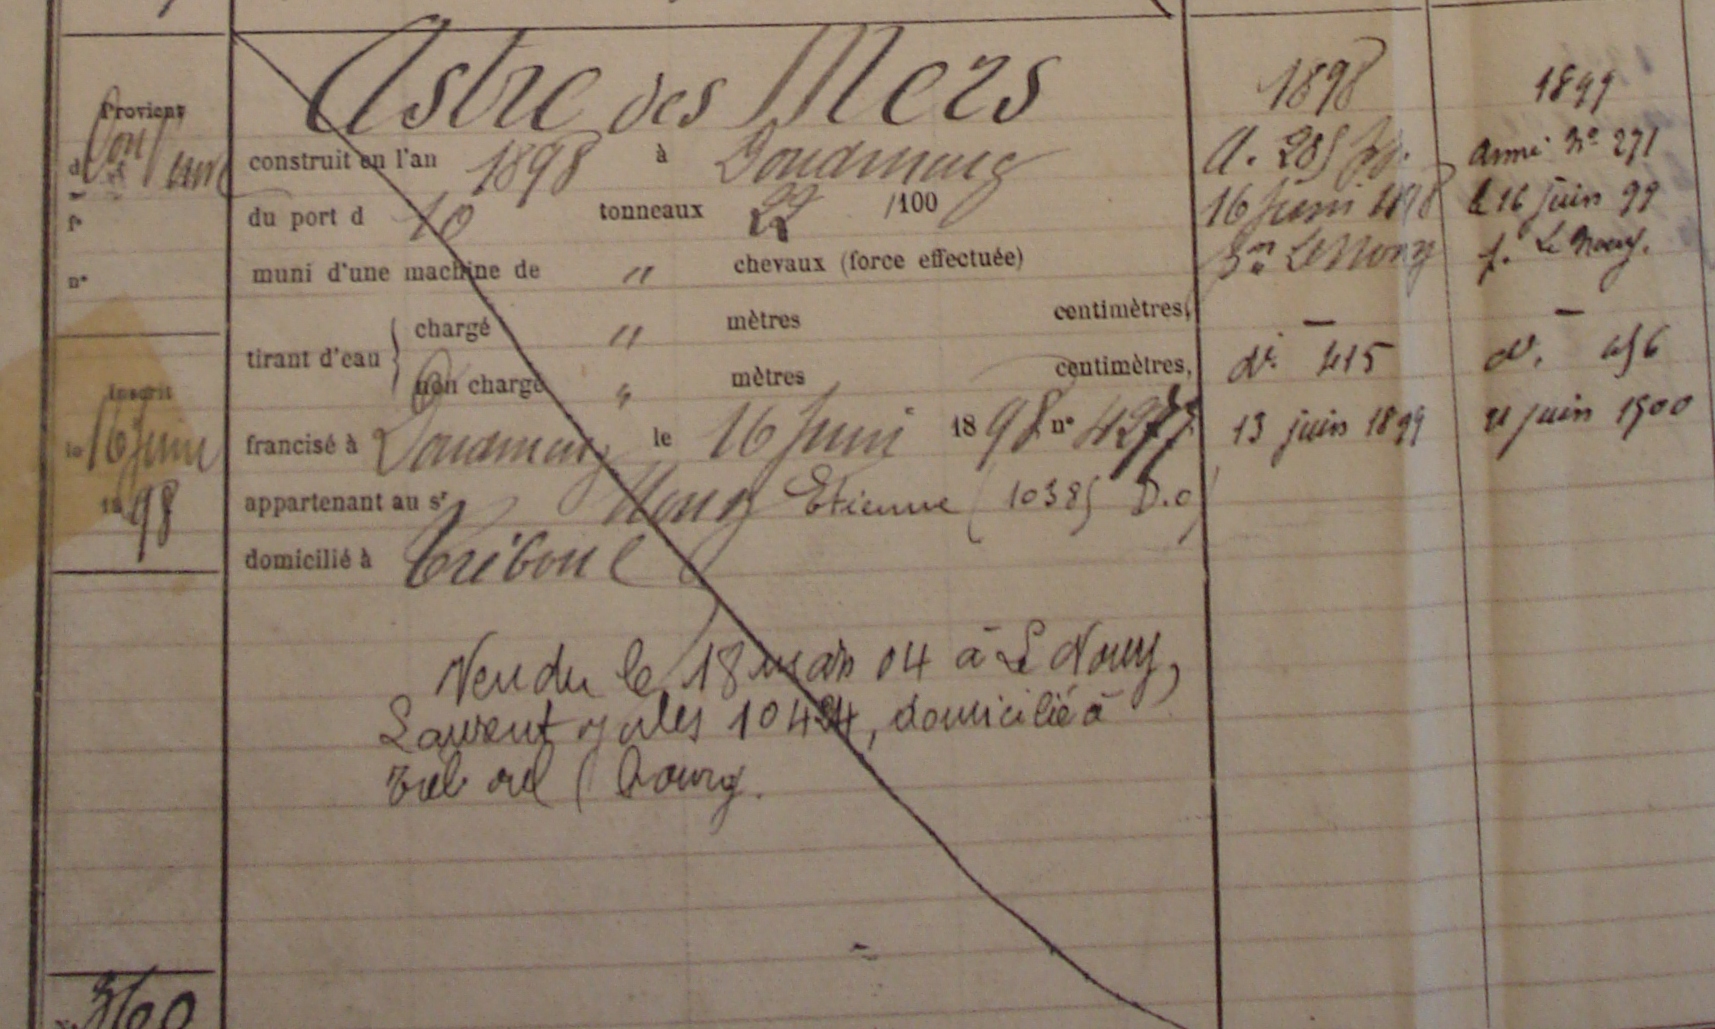 Astre des Mers
Provient
d
fº
nº
construit en l'an 1898 à Douarnenez
du port d 10 tonneaux 22 /100
muni d'une machine de " chevaux (force effectuée)
tirant d'eau { chargé " mètres centimètres,
non chargé " mètres centimètres,
Inscrit
le 16 Juin
1898
francisé à Douarnenez le 16 Juin 1898 nº 4277
appartenant au sʳ Etienne (10385 D.o)
domicilié à Tréboul
Vendu le 18 mars 04 à Le Nouy,
Laurent Jules 10424, domicilié à
Tréboul (bourg.
360
1898
A. 285
16 Juin 1898
dº. 415
13 juin 1899
1899
armé Nº 271
le 16 juin 99
dº. 456
juin 1900